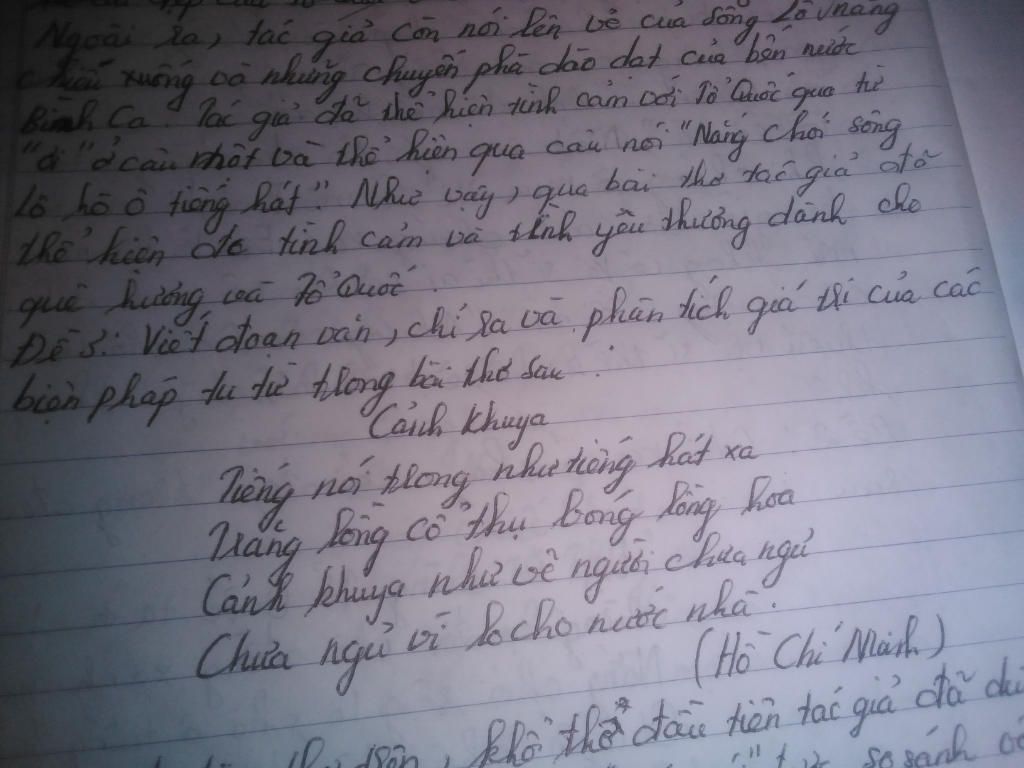 Ngoài ra, tác giả còn nói lên vẻ của sông Lô, nắng
chiếu xuống và những chuyến phà dào dạt của bến nước
Bình Ca. Tác giả đã thể hiện tình cảm với Tổ Quốc qua từ
"ơi" ở câu một và thể hiện qua câu nói "Nắng chói sông
Lô hô ô tiếng hát". Như vậy, qua bài thơ tác giả đã
thể hiện tình cảm và tình yêu thương dành cho
quê hương và Tổ Quốc.
Đề 3: Viết đoạn văn, chỉ ra và phân tích giá trị của các
biện pháp tu từ trong bài thơ sau:
Cảnh khuya
Tiếng nói trong như tiếng hát xa
Trăng lồng cổ thụ bóng lồng hoa
Cảnh khuya như vẽ người chưa ngủ
Chưa ngủ vì lo cho nước nhà.
(Hồ Chí Minh)
khổ thơ đầu tiên tác giả đã
so sánh